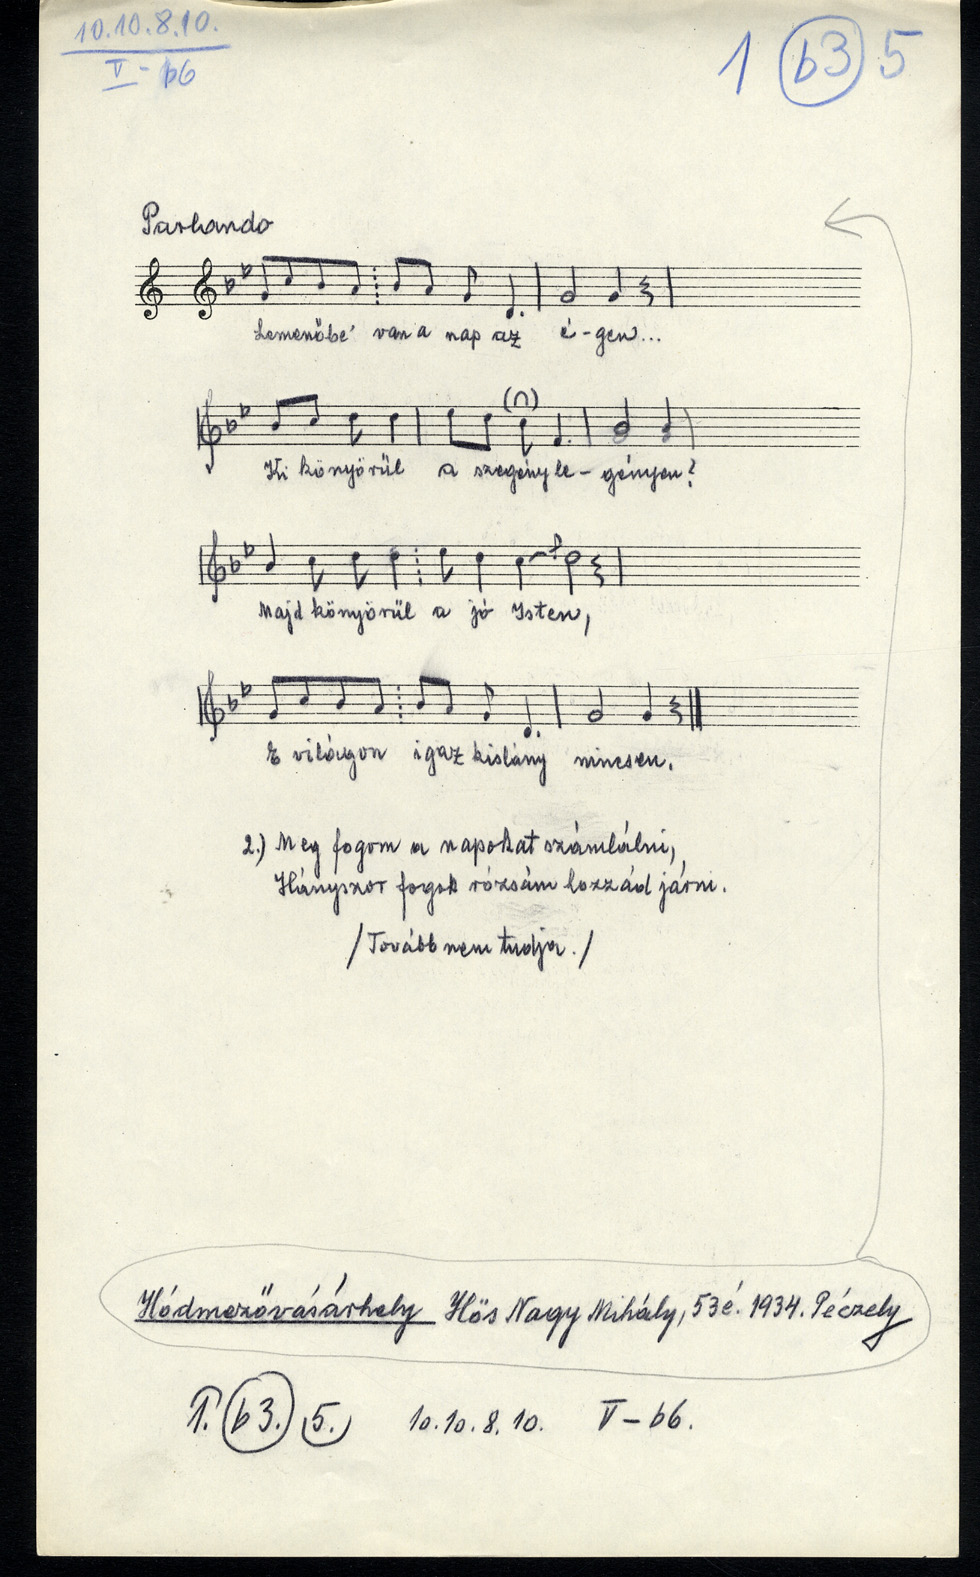 10.10.8.10.
V - b6
1 b3 5
Parlando
Lemenőbe' van a nap az é-gen...
(∩)
Ki könyörül a szegényle-gényen?
Majd könyörül a jó Isten,
E világon igaz kislány nincsen.
2.) Meg fogom a napokat számlálni,
Hányszor fogok rózsám hozzád járni.
/Tovább nem tudja./
Hódmezővásárhely Hős Nagy Mihály, 53 é. 1934. Péczely
1. b3. 5. 10.10.8.10. V - b6.